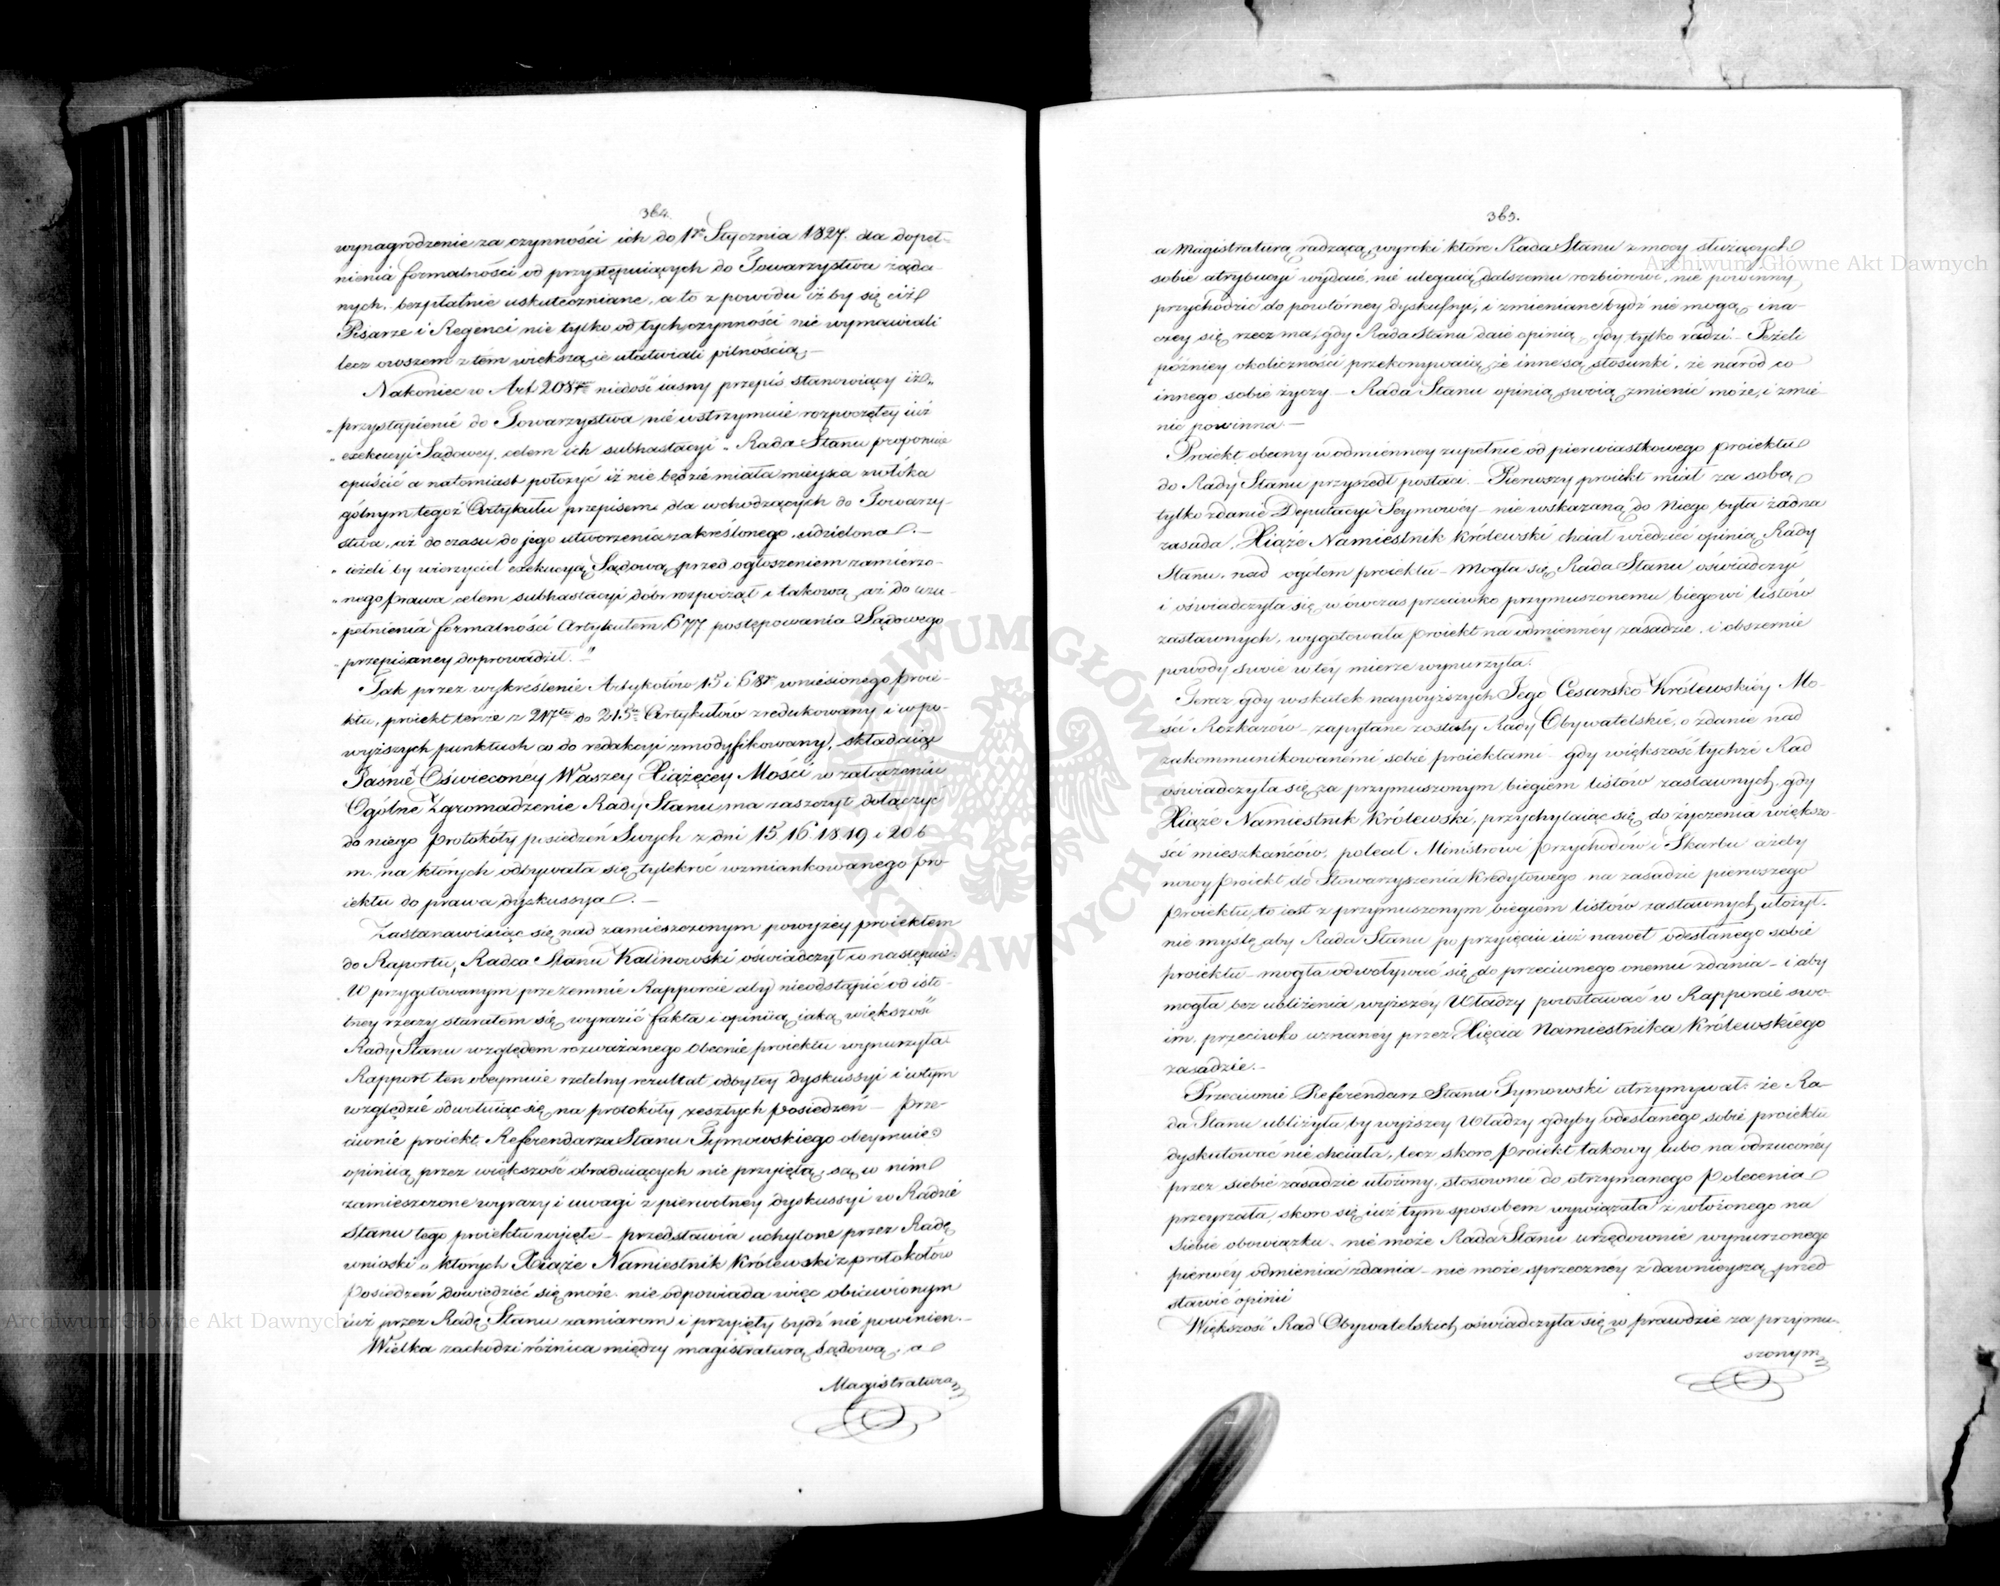 364.
wynagrodzenie za czynności ich do 1go Stycznia 1827. dla dopeł-
nienia formalności od przystępuiących do Towarzystwa żąda-
nych, bezpłatnie uskuteczniane, a to z powodu iżby się ciż
Pisarze i Regenci nie tylko od tych czynności nie wymawiali
lecz owszem z tém większą ie ułatwiali pilnością. —
Nakoniec w Art 208ym niedość iasny przepis stanowiący iż „
„ przystąpienié do Towarzystwa nié wstrzymuié rozpoczętey iuż
„ exekucyi Sądowey, celem ich subhastacyi „ Rada Stanu proponuie
opuścić a natomiast położyć iż nie będzié miała mieysca zwłóka
gólnym tegoż Artykułu przepisem dla wchodzących do Towarzy-
stwa, aż do czasu do jego utworzenia zakréślonego, udzielona. —
„ ieżeli by wierzyciel exekucyą Sądową przed ogłoszeniem zamierzo-
„ nego prawa celem subhastacyi dóbr rozpoczął i takową aż do uzu-
„ pełnienia formalności Artykułem 677 postępowania Sądowego
„ przepisaney doprowadził. "
Tak przez wykréślenie Artykułów 15 i 68go wniesionego proie-
ktu, proiekt tenże z 217tu do 215tu Artykułów zredukowany i w po-
wyższych punktach co do redakcyi zmodyfikowany, składaiąc
Jaśnié Oświeconéy Waszey Xiążęcey Mości w załączeniu
Ogólne Zgromadzenie Rady Stanu, ma zaszczyt dołączyć
do niego Protokóły posiedzeń Swych z dni 15 16 18 19 i 20 b
m. na których odbywała się tylekroć wzmiankowanego pro-
iektu do prawa dyskussya. —
Zastanawiaiąc się nad zamieszczonym powyżey proiektem
do Raportu, Radca Stanu Kalinowski oświadczył co następuie.
„ W przygotowanym przezemnié Rapporcie aby nieodstąpić od isto-
tney rzeczy starałem się wyrazić fakta i opinią iaką większość
Rady Stanu względem rozważanego obecnié proiektu wynurzyła
Rapport ten obeymuie rzetelny rezultat odbytey dyskussyi i w tym
względzié odwołuiąc się na protokóły zeszłych posiedzeń — Prze-
ciwnié proiekt Referendarza Stanu Tymowskiego obeymuie
opinią przez większość obraduiących nie przyiętą, są w nim
zamieszczone wyrazy i uwagi z pierwotney dyskussyi w Radzié
Stanu tego proiektu wyięte — przedstawia uchylone przez Radę
wnioski, o których Xiąże Namiestnik Królewski z protokółów
Posiedzeń dowiedzieć się może. nie odpowiada więc obiawionym
iuż przez Radę Stanu zamiarom i przyięty bydź nié powinien. —
Wielka zachodzi różnica między magistraturą Sądową, a
Magistraturą
365.
a Magistraturą radzącą, wyroki które Rada Stanu z mocy służących
sobie atrybucyi wydaié, nié ulegaią dalszemu rozbiorowi, nie powinny
przychodzić do powtórney dyskussyi, i zmieniane bydź nié mogą, ina-
czey się rzecz ma, gdy Rada Stanu daie opinią, gdy tylko radzi. — Jeżeli
późniey okoliczności przekonywaią, że inne są stosunki, że naród co
innego sobié życzy — Rada Stanu opinią swoią zmienić może, i zmie-
nić powinna —
Proiekt obecny w odmienney zupełnie od pierwiastkowego proiektu
do Rady Stanu przyszedł postaci. — Pierwszy proiekt miał za sobą
tylko zdanié Deputacyi Seymowey — nie wskazaną do niego była żadna
zasada, Xiąże Namiestnik Królewski chciał wiedzieć opinią Rady
Stanu, nad ogółem proiektu — Mogła się Rada Stanu oświadczyć
i oświadczyła się wówczas przeciwko przymuszonemu biegowi listów
zastawnych, wygotowała proiekt na odmiennéy zasadzie, i obszernie
powody swoie w téy mierze wynurzyła.
Teraz gdy w skutek naywyższych Jego Cesarsko-Królewskiéy Mo-
ści Rozkazów — zapytane zostały Rady Obywatelskie, o zdanie nad
zakommunikowanémi sobié proiektami — gdy większość tychże Rad
oświadczyła się za przymuszonym biegiem listów zastawnych, gdy
Xiąże Namiestnik Królewski, przychylaiąc się do życzenia większo-
ści mieszkańców, polecił Ministrowi Przychodów i Skarbu ażeby
nowy proiekt do Stowarzyszenia Kredytowego na zasadzie pierwszego
proiektu, to iest z przymuszonym biegiem listów zastawnych ułożył.
nie myślę aby Rada Stanu po przyięciu iuż nawet odesłanego sobié
proiektu — mogła odwoływać się do przeciwnego onemu zdania — i aby
mogła bez ubliżenia wyższéy Władzy powstawać w Rapporcie swo-
im, przeciwko uznaney przez Xięcia Namiestnika Królewskiego
zasadzie. —
Przeciwnie Referendarz Stanu Tymowski utrzymywał: że Ra-
da Stanu ubliżyła by wyższey Władzy gdyby odesłanego sobié proiektu
dyskutować nie chciała, lecz skoro proiekt takowy lubo na odrzuconéy
przez siebié zasadzie ułożony, stosownie do otrzymanego Polecenia
przeyrzała, skoro się iuż tym sposobem wywiązała z włożonego na
siebie obowiązku — nié może Rada Stanu urzędownie wynurzonego
pierwéy odmieniać zdania — nie może sprzeczney z dawnieyszą przed-
stawić opinii
Większość Rad Obywatelskich oświadczyła się w prawdzie za przymu-
szonym
Archiwum Główne Akt Dawnych
Archiwum Główne Akt Dawnych
ARCHIWUM GŁÓWNE AKT DAWNYCH